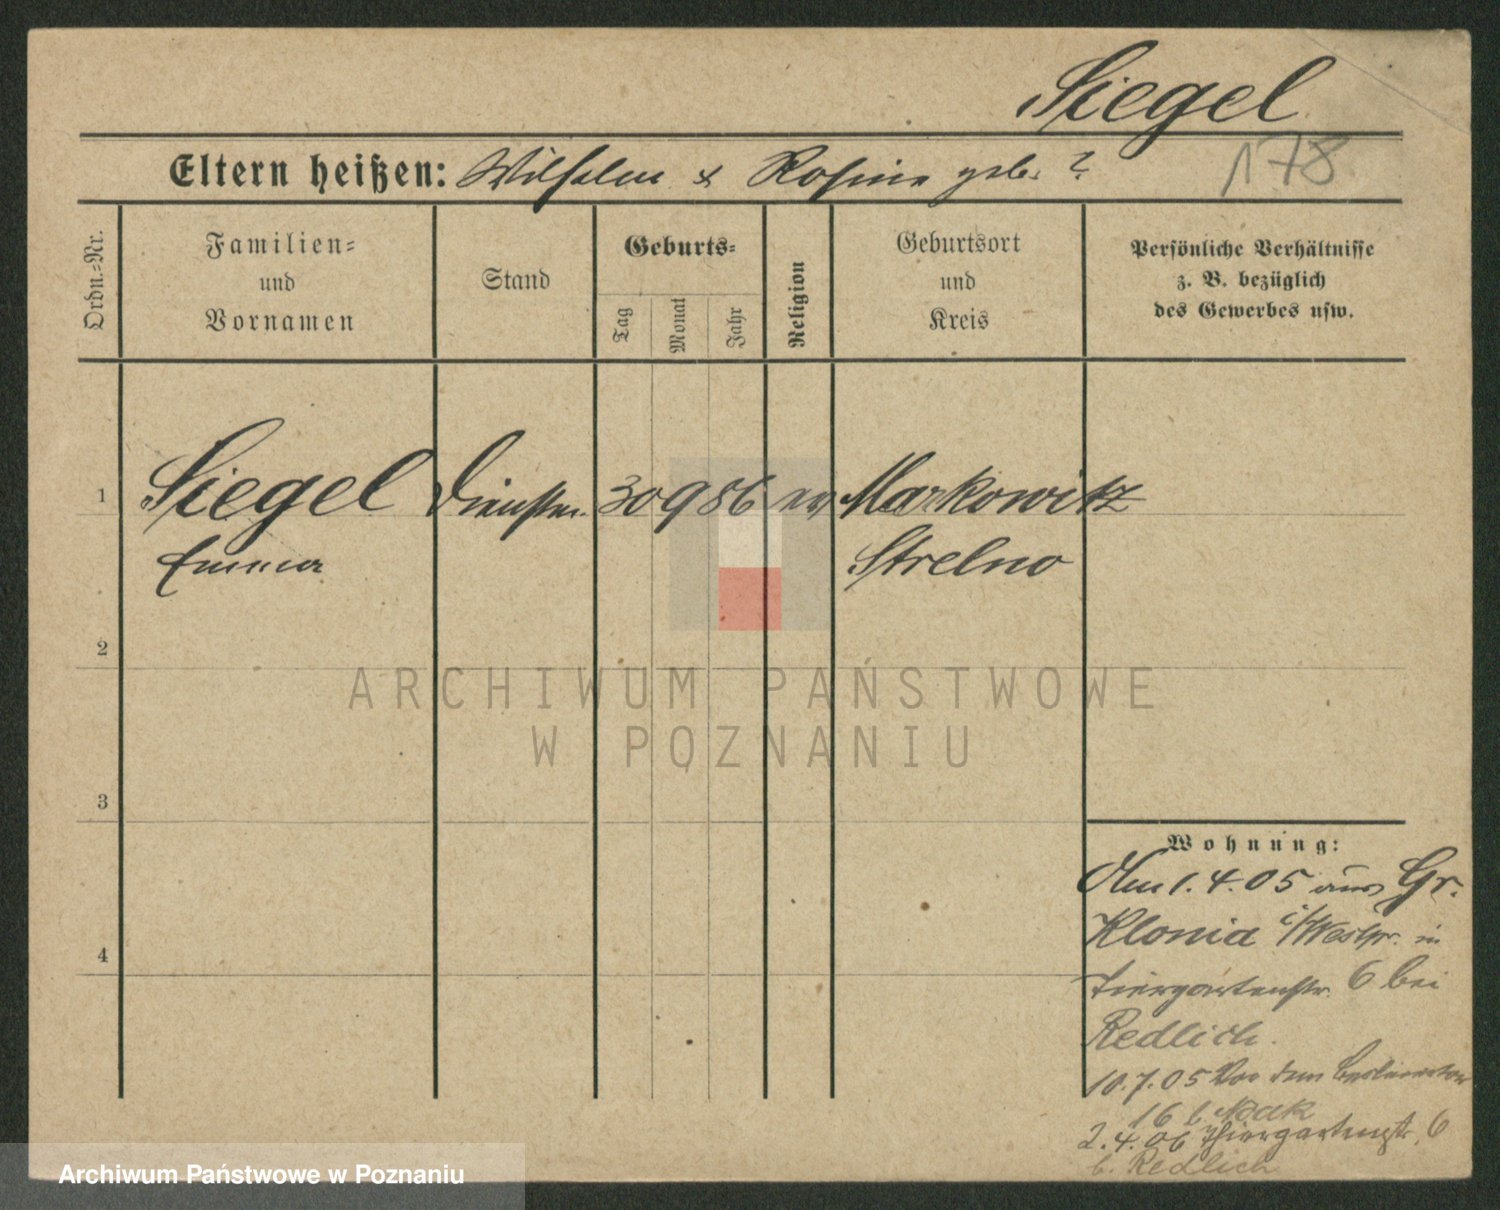 Siegel
178
Eltern heißen: Wilhelm & Rosine geb. ?
Ordn.-Nr.
Familien-
und
Vornamen
Stand
Geburts-
Tag
Monat
Jahr
Religion
Geburtsort
und
Kreis
Persönliche Verhältnisse
z. B. bezüglich
des Gewerbes usw.
1
Siegel Dienstm. 30 9 86 ev Markowitz
Emma Strelno
2
ARCHIWUM PAŃSTWOWE
W POZNANIU
3
Wohnung:
Am 1.4.05 aus Gr.
Klonia i/Westpr. in
Tiergartenstr. 6 bei
Redlich.
10.7.05 Vor dem Berlinertor
16 b. Noak
2.4.06 Thiergartenstr. 6
b. Redlich
4
Archiwum Państwowe w Poznaniu